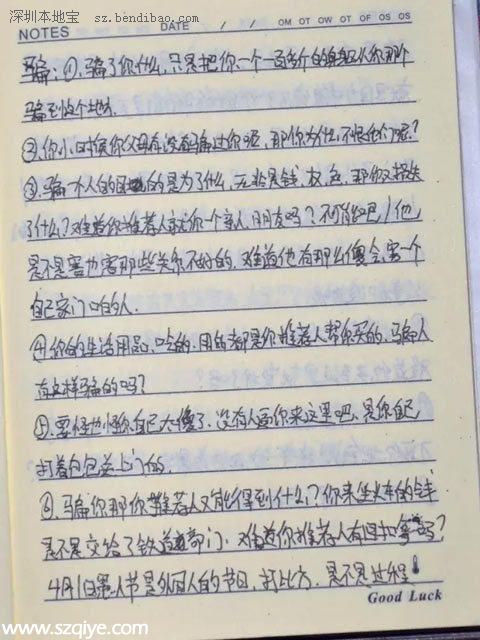 深圳本地宝 sz.bendibao.com
NOTES DATE / / OM OT OW OT OF OS OS
骗：①，骗了你什么，只是把你一个一百多斤的身躯从你那个
骗到这个地方
②你小时候你父母有没有骗过你呢，那你为什么不恨他们呢？
③，骗一个人的目的是为了什么，无非是钱、权、色，那你又损失
了什么？难道你推荐人就你一个亲人、朋友吗？不可能吧！他
是不是害也害那些关系不好的，难道他有那么傻会害一个
自己家门口的人．
④你的生活用品、吃的、用的都是你推荐人帮你买的，骗人
有这样骗的吗？
⑤，要怪也怪你自己太傻了，没有人要你来这里吧，是你自己
打着包包送上门的．
⑥，骗你那你推荐人又能得到什么？你来坐火车的钱
是不是交给了铁道部门，难道你推荐人有回扣拿吗？
4月1日愚人节是外国人的节日，打比方，是不是过程！
Good Luck
www.szqiye.com